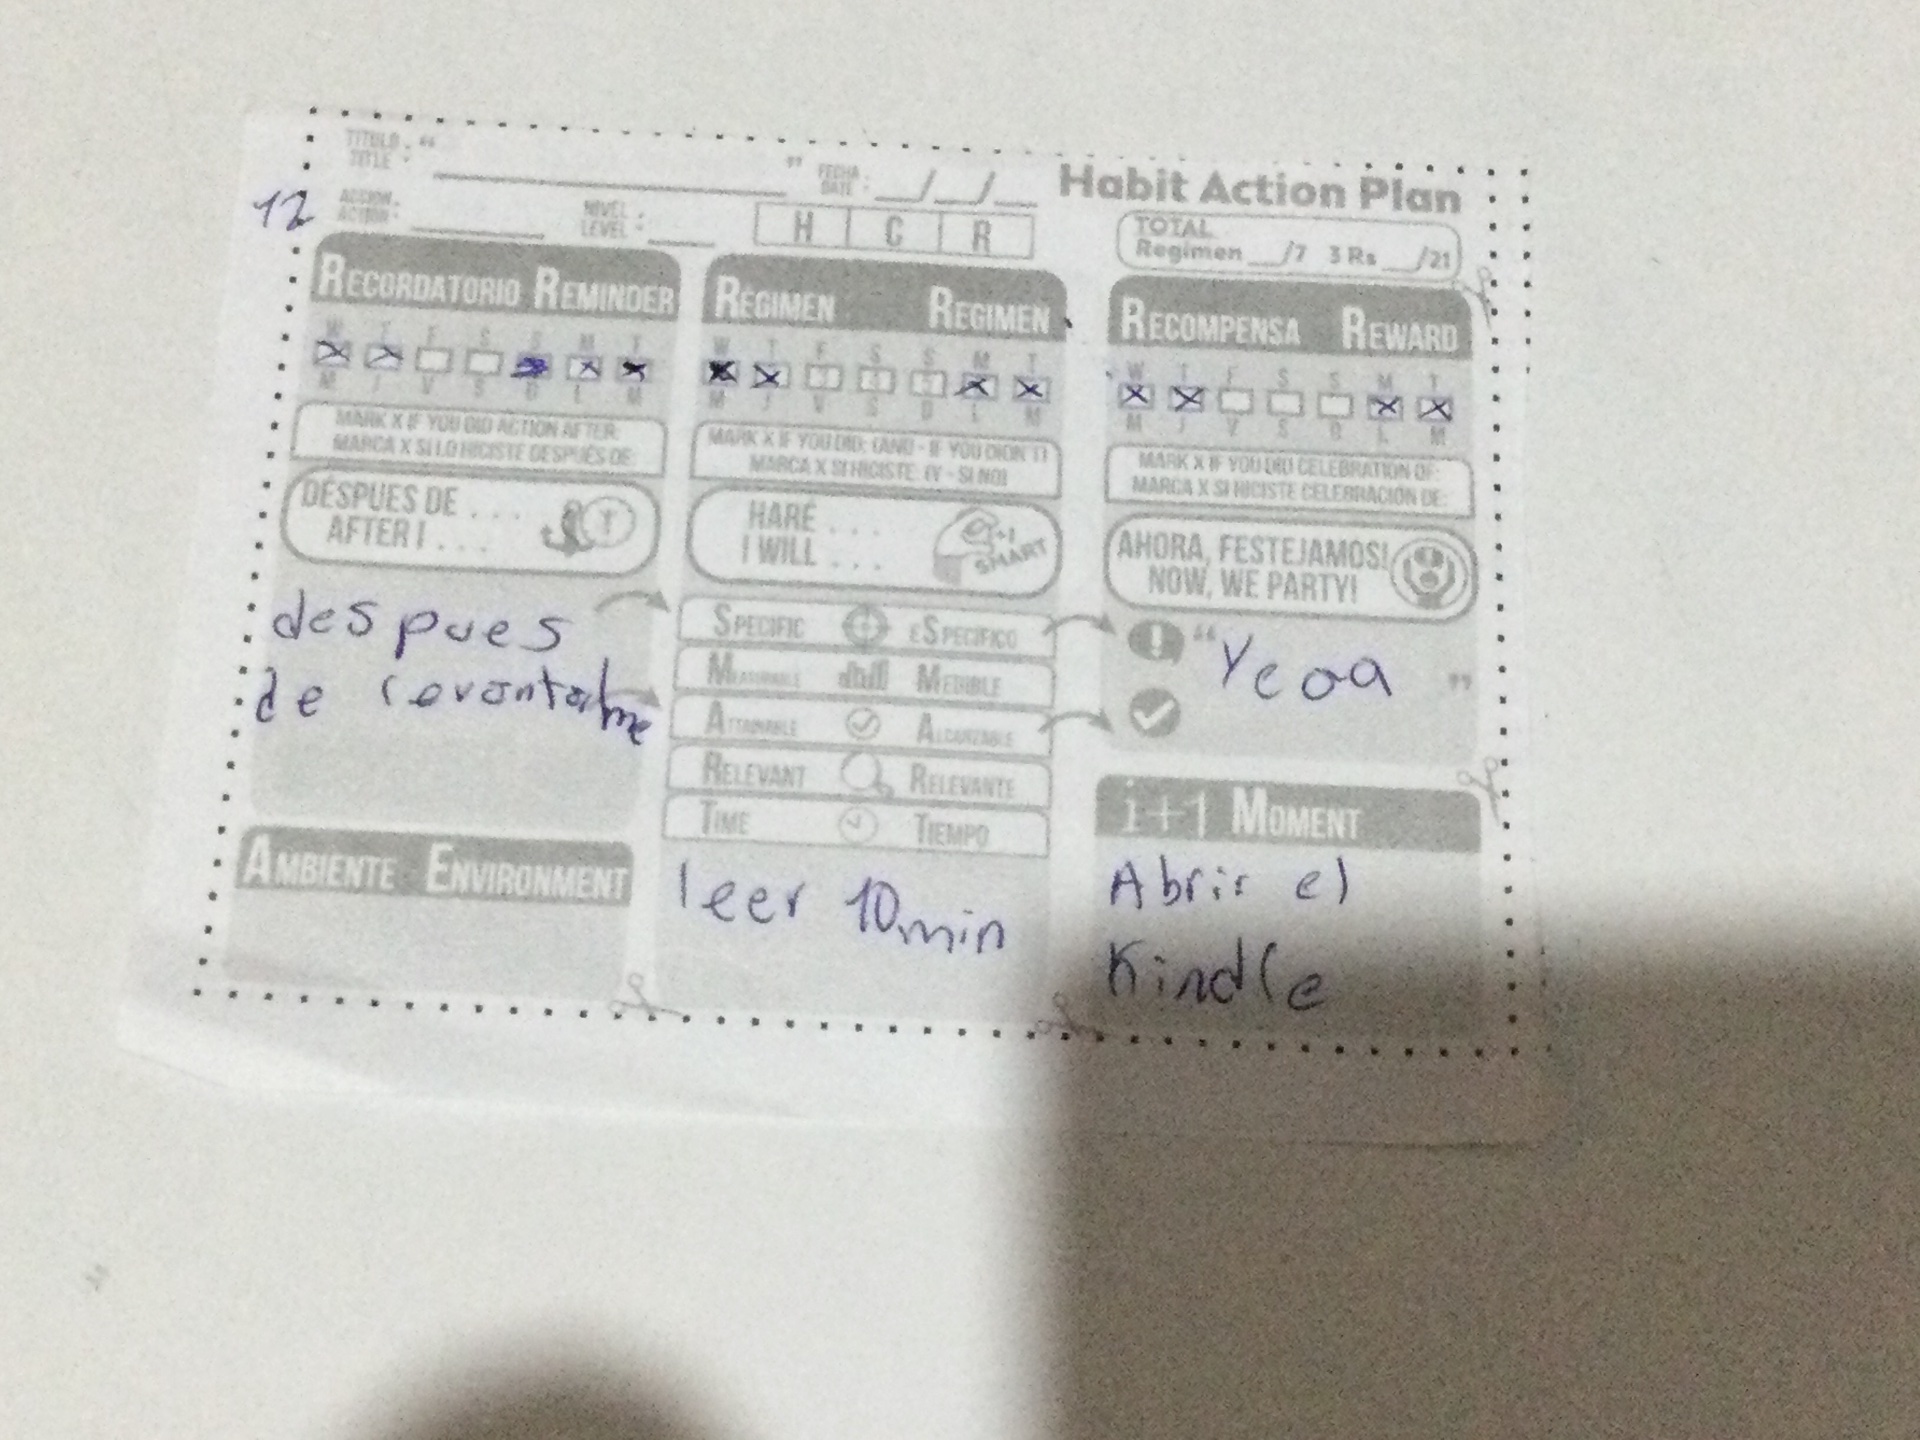 TITULO
TITLE : “ ”
FECHA
DATE : __/__/__
Habit Action Plan
12
ACCION
ACTION :
NIVEL
LEVEL :
H C R
TOTAL
Regimen __/7 3 Rs __/21
RECORDATORIO REMINDER
W T F S S M T
M J V S D L M
MARK X IF YOU DID ACTION AFTER:
MARCA X SI LO HICISTE DESPUÉS DE:
DESPUES DE . . .
AFTER I . . .
despues
de levantarme
AMBIENTE ENVIRONMENT
RÉGIMEN REGIMEN
W T F S S M T
M J V S D L M
MARK X IF YOU DID: (AND - IF YOU DIDN'T)
MARCA X SI HICISTE: (Y - SI NO)
HARÉ . . .
I WILL . . .
+1
SMART
SPECIFIC ESPECIFICO
MEASURABLE MEDIBLE
ATTAINABLE ALCANZABLE
RELEVANT RELEVANTE
TIME TIEMPO
leer 10 min
RECOMPENSA REWARD
W T F S S M T
M J V S D L M
MARK X IF YOU DID CELEBRATION OF:
MARCA X SI HICISTE CELEBRACIÓN DE:
AHORA, FESTEJAMOS!
NOW, WE PARTY!
“ Yeaa ”
i+1 MOMENT
Abrir el
Kindle